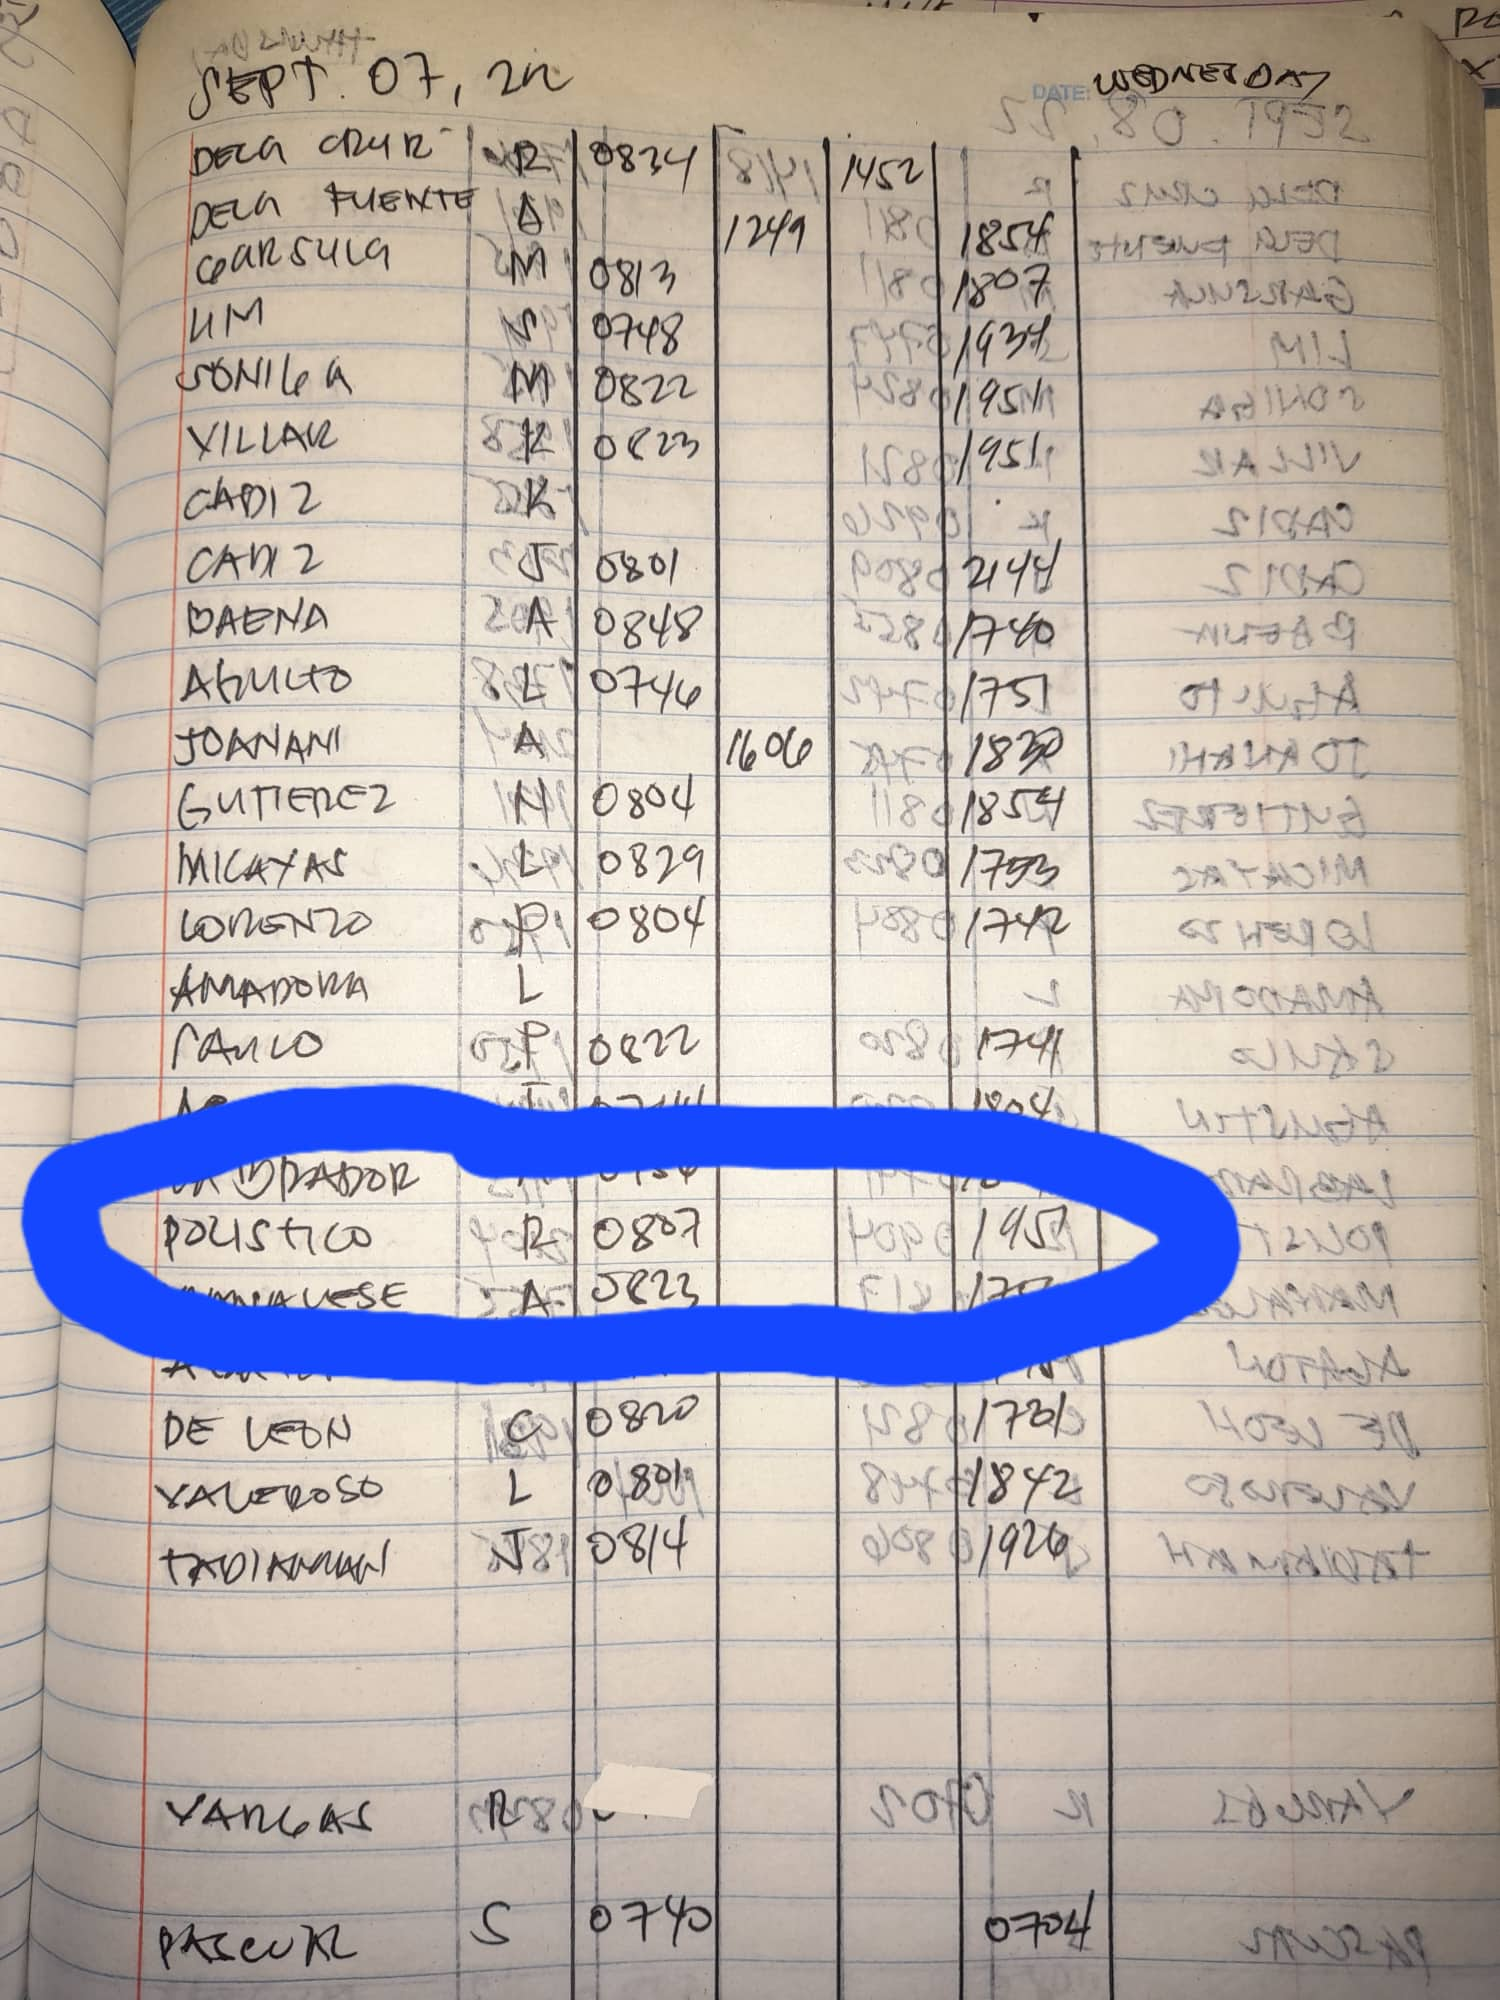 SEPT. 07, 22 DATE: WEDNESDAY
DELA CRUZ R 0834 1452
DELA FUENTE A 1249 1854
GARSULA M 0813 1807
LIM S 0748 1934
SONIGA M 0822 1951
VILLAR K 0823 1951
CADIZ K
CADIZ J 0801 2144
BAENA A 0848 1740
AGULTO L 0746 1751
JOANANI A 1606 1830
GUTIEREZ N 0804 1854
MICAYAS L 0829 1753
LORENZO P 0804 1742
AMADORA L
SAULO P 0822 1741
1804
LABRADOR
POLISTICO R 0807 1957
MANALESE A 0823
DE LEON C 0820 1731
VALEROSO L 0801 1842
TADIAMAN J 0814 1926
VARGAS R
PASCUAL S 0740 0704